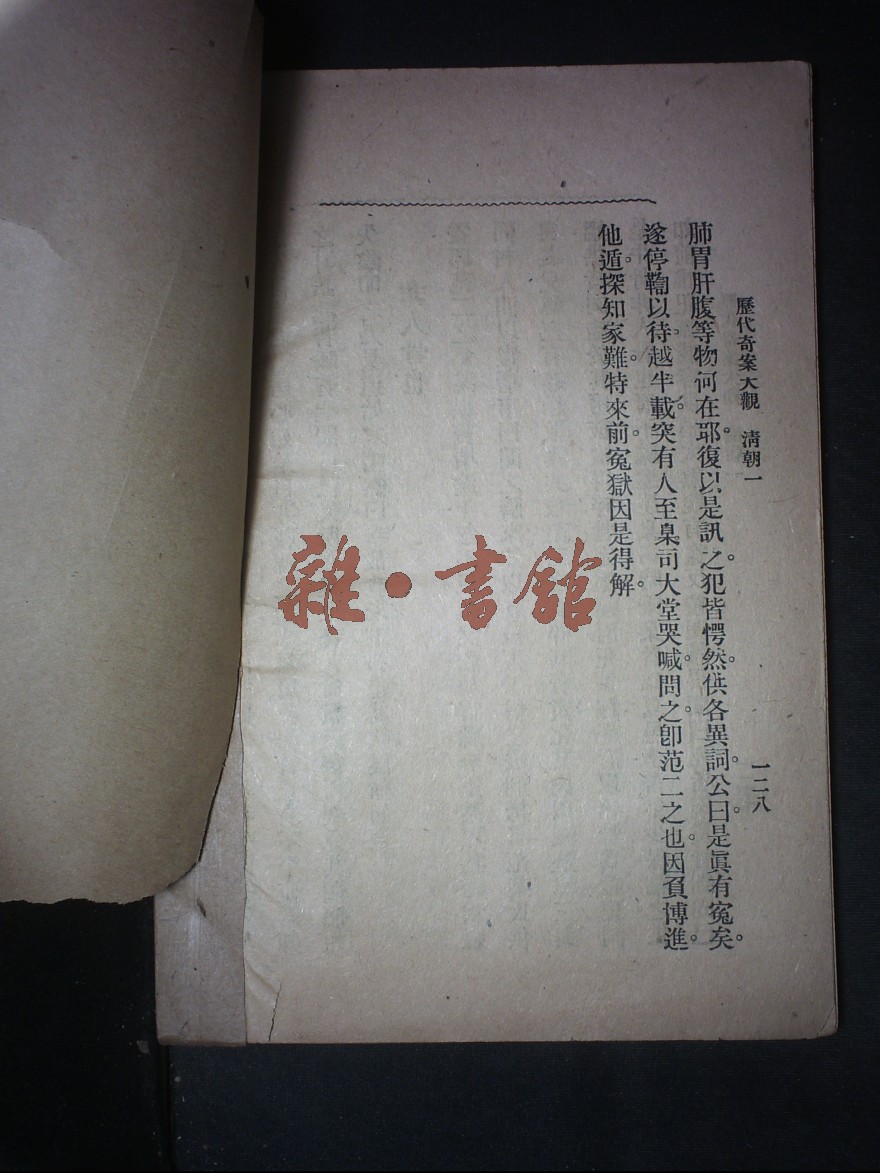 歷代奇案大觀　清朝一
一二八
肺胃肝腹等物何在耶。復以是訊之。犯皆愕然。供各異詞。公曰。是眞有寃矣。
遂停鞫以待。越半載。突有人至臬司大堂哭喊。問之。卽范二之也。因負博進。
他遁。探知家難。特來前。寃獄因是得解。
雜·書館